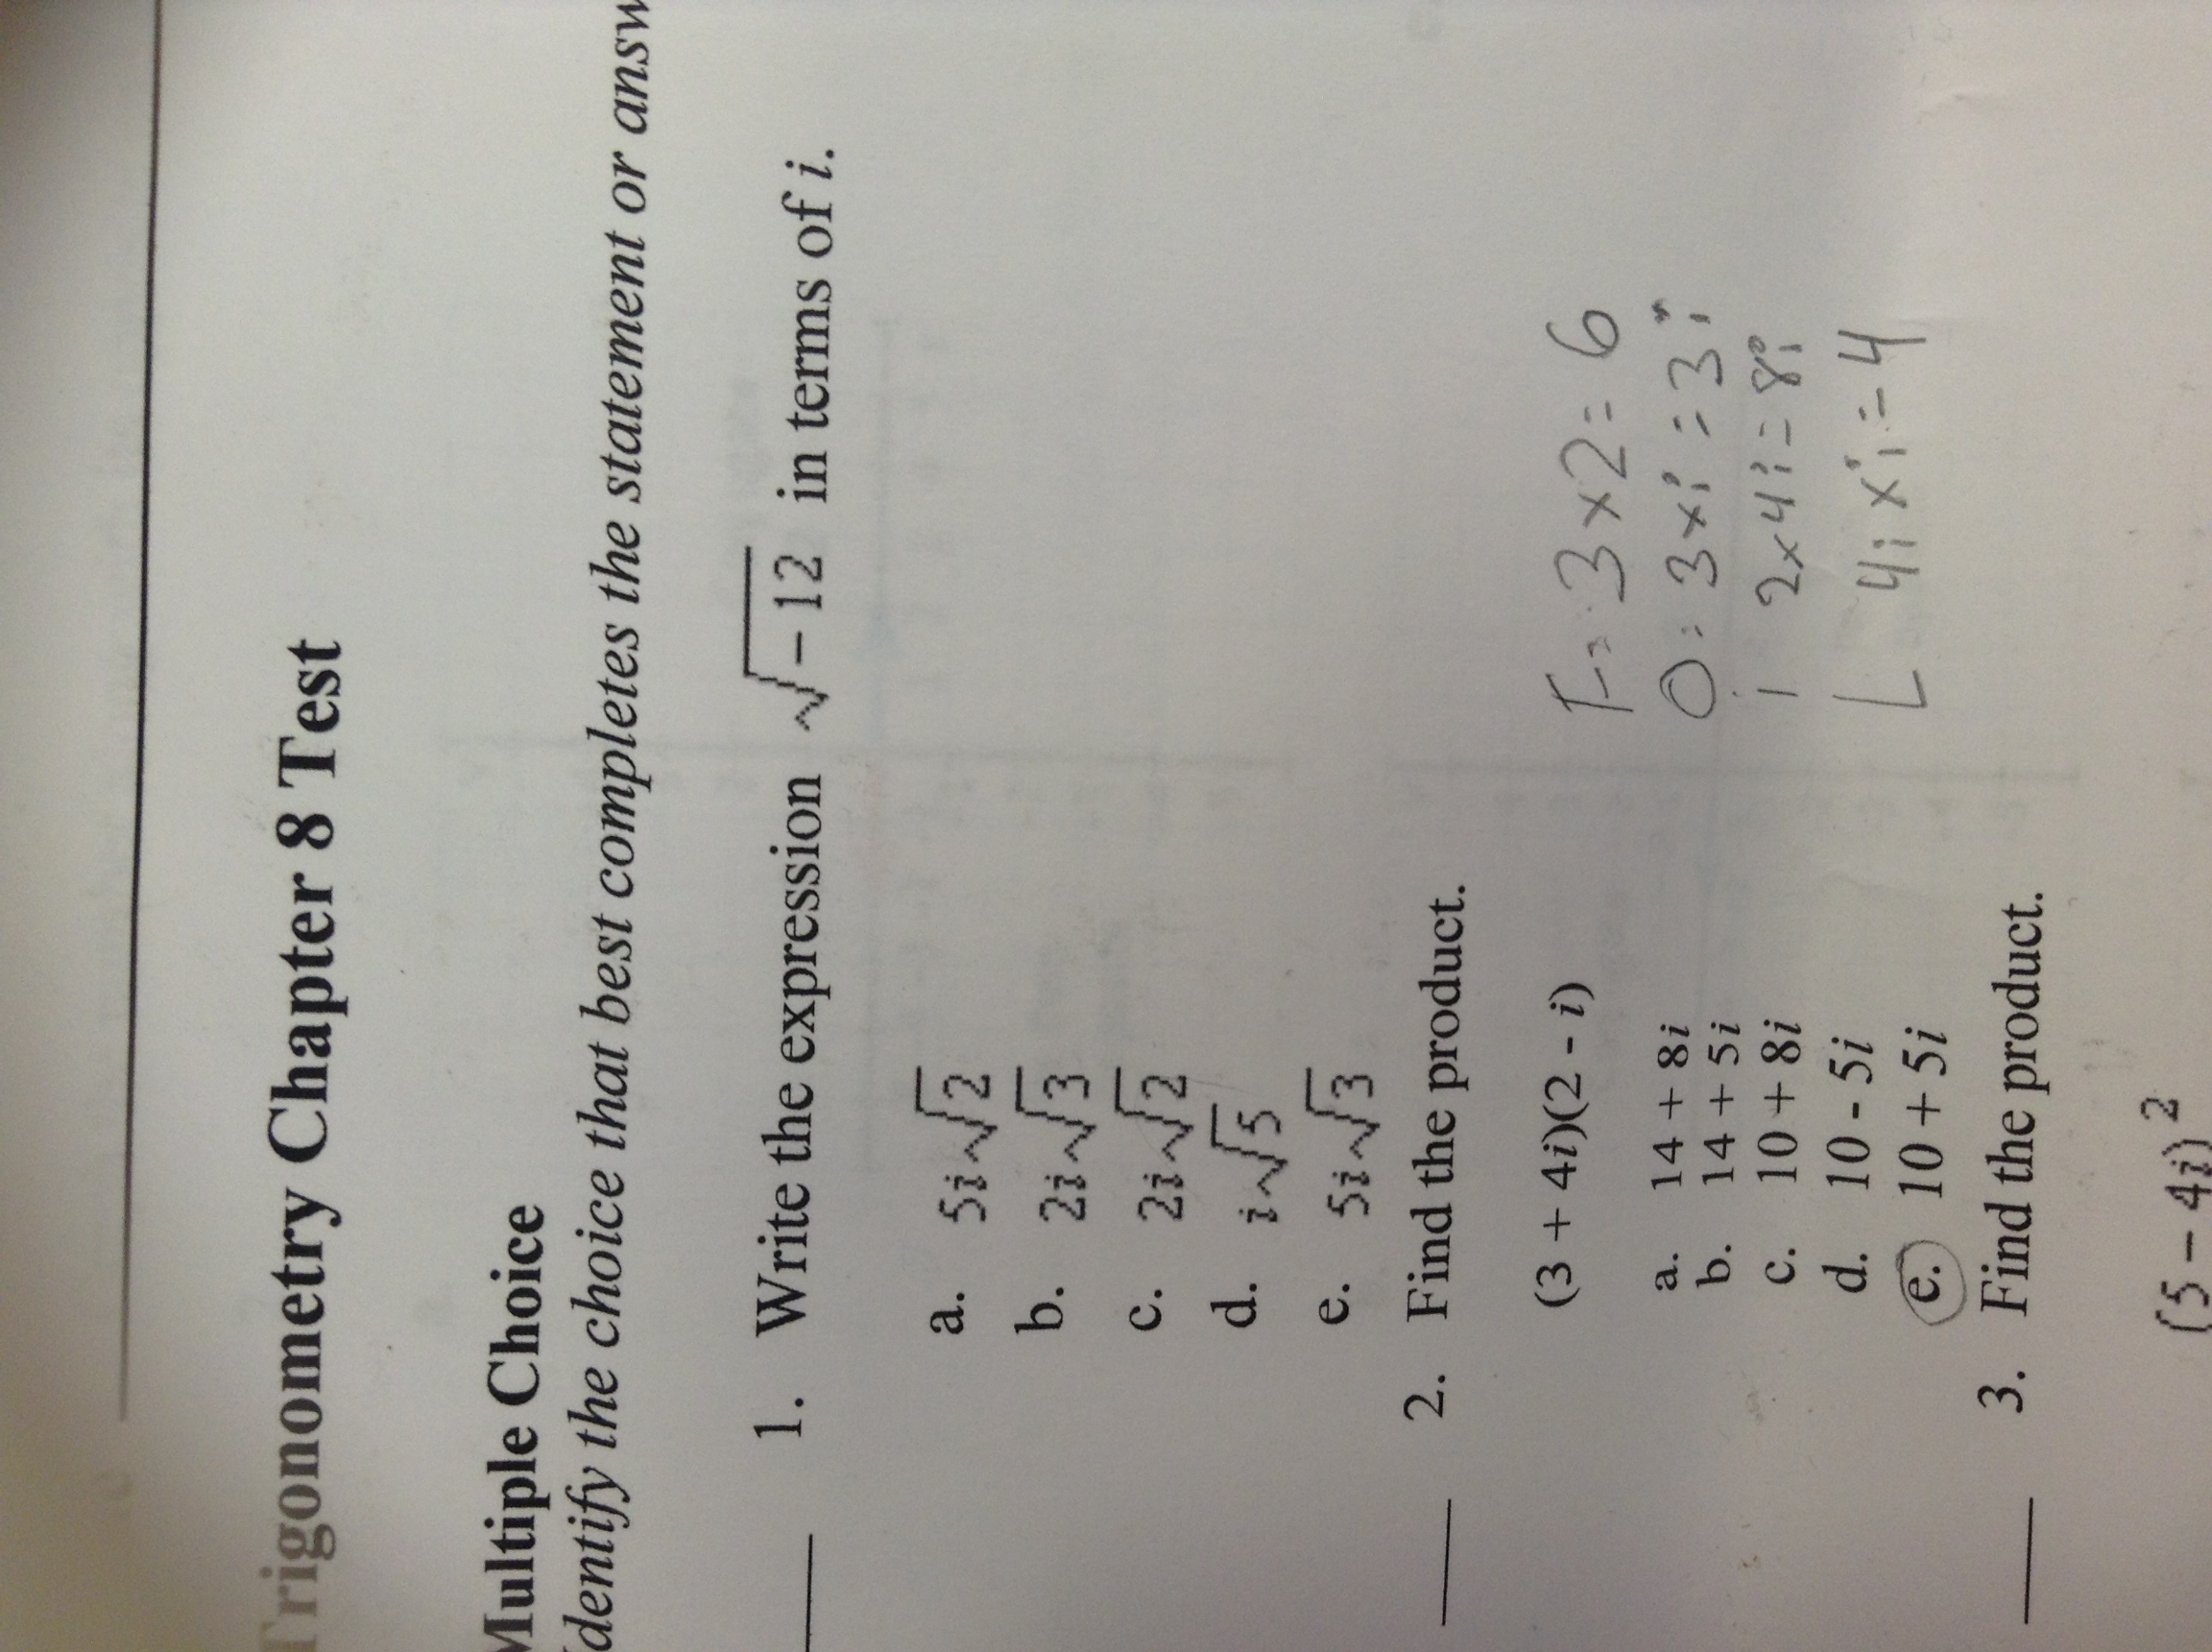 Trigonometry Chapter 8 Test
Multiple Choice
Identify the choice that best completes the statement or answ
1. Write the expression √-12 in terms of i.
a. 5i√2
b. 2i√3
c. 2i√2
d. i√5
e. 5i√3
2. Find the product.
(3 + 4i)(2 - i)
F: 3x2= 6
O: 3xi = 3i
i 2x4i= 8i
L 4i xi=4
a. 14 + 8i
b. 14 + 5i
c. 10 + 8i
d. 10 - 5i
e. 10 + 5i
3. Find the product.
(5 - 4i)²